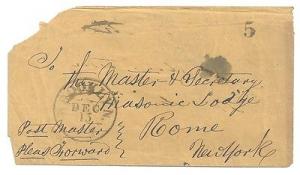 5
To the Master & Secretary
Masonic Lodge
DEC
13
Rome
Post Master
Pleas Forward
New York